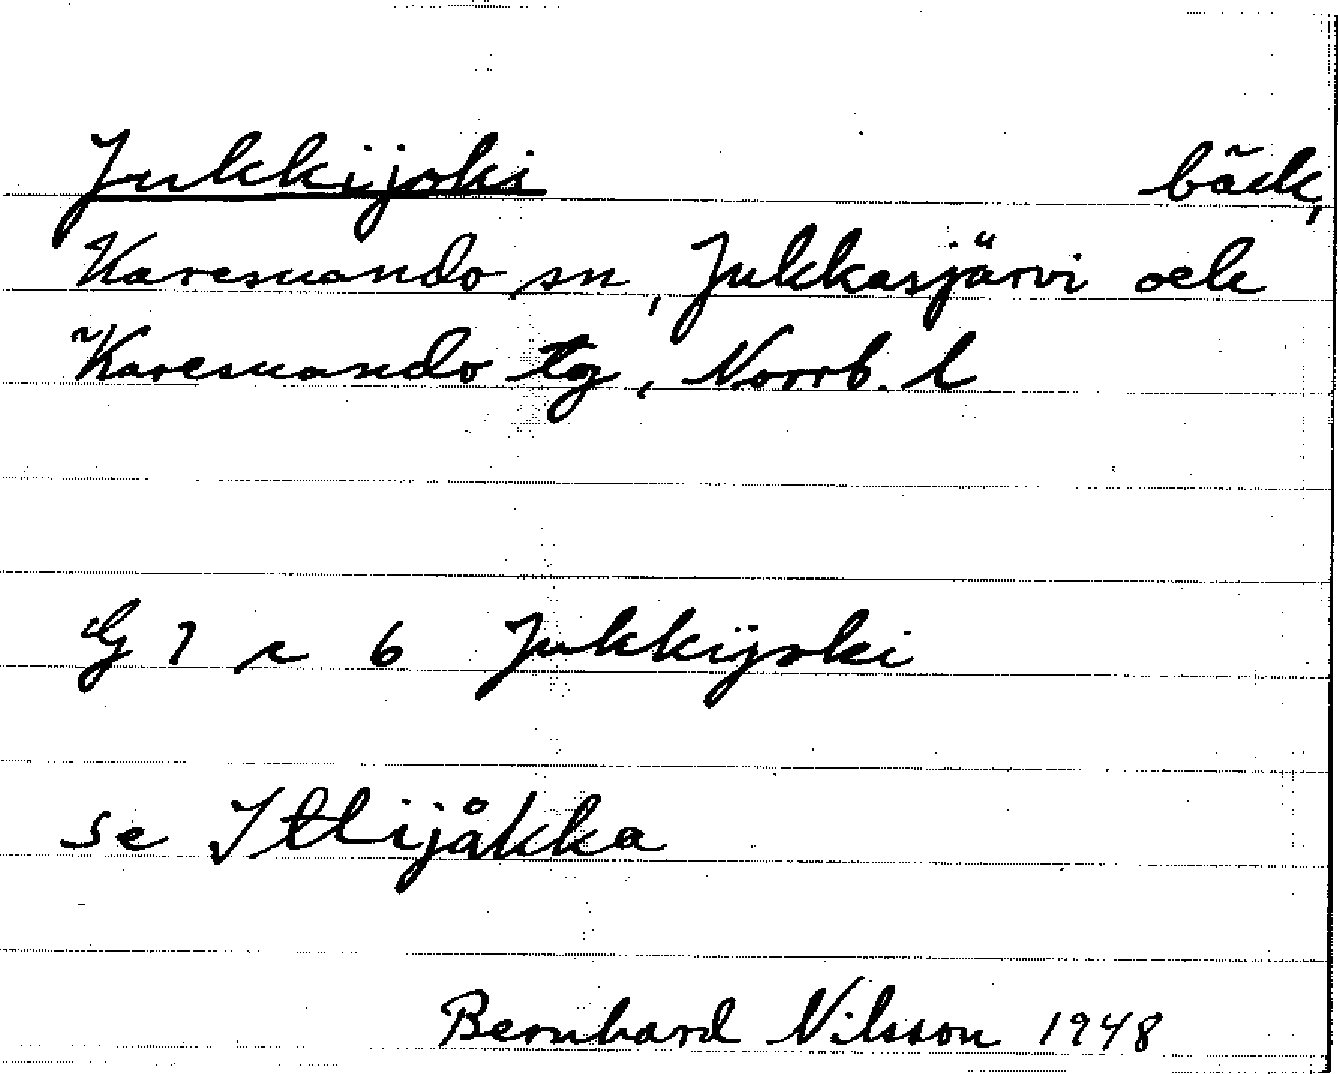 Jukkijoki bäck,
Karesuando sn, Jukkasjärvi och
Karesuando tg, Norrb. l
G 7 r 6 Jukkijoki
se Itlijåkka
Bernhard Nilsson 1948